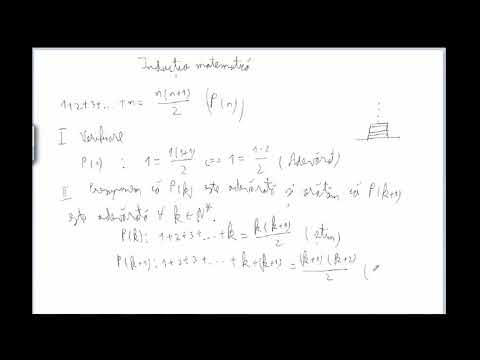 Inducția matematică
1+2+3+...+n = n(n+1)/2 (P(n))
I Verificare
P(1) : 1 = 1(1+1)/2 <=> 1 = 1·2/2 (Adevărat)
II Presupunem că P(k) este adevărată și arătăm că P(k+1)
este adevărată ∀ k ∈ N*.
P(k): 1+2+3+...+k = k(k+1)/2 (știm)
P(k+1): 1+2+3+...+k+(k+1) = (k+1)(k+2)/2 (